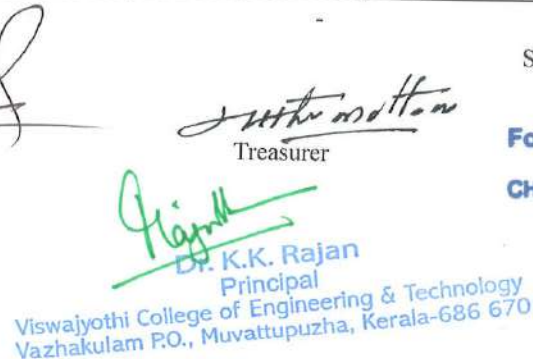 S
Treasurer
Fo
CH
Dr. K.K. Rajan
Principal
Viswajyothi College of Engineering & Technology
Vazhakulam P.O., Muvattupuzha, Kerala-686 670